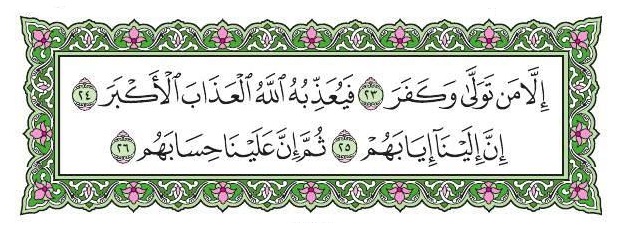 إِلَّا مَن تَوَلَّىٰ وَكَفَرَ ٢٣ فَيُعَذِّبُهُ ٱللَّهُ ٱلْعَذَابَ ٱلْأَكْبَرَ ٢٤
إِنَّ إِلَيْنَآ إِيَابَهُمْ ٢٥ ثُمَّ إِنَّ عَلَيْنَا حِسَابَهُم ٢٦